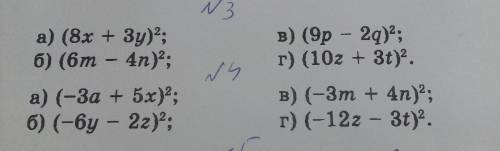 №3
а) (8x + 3y)²; в) (9p − 2q)²;
б) (6m − 4n)²; г) (10z + 3t)².
№4
а) (−3a + 5x)²; в) (−3m + 4n)²;
б) (−6y − 2z)²; г) (−12z − 3t)².